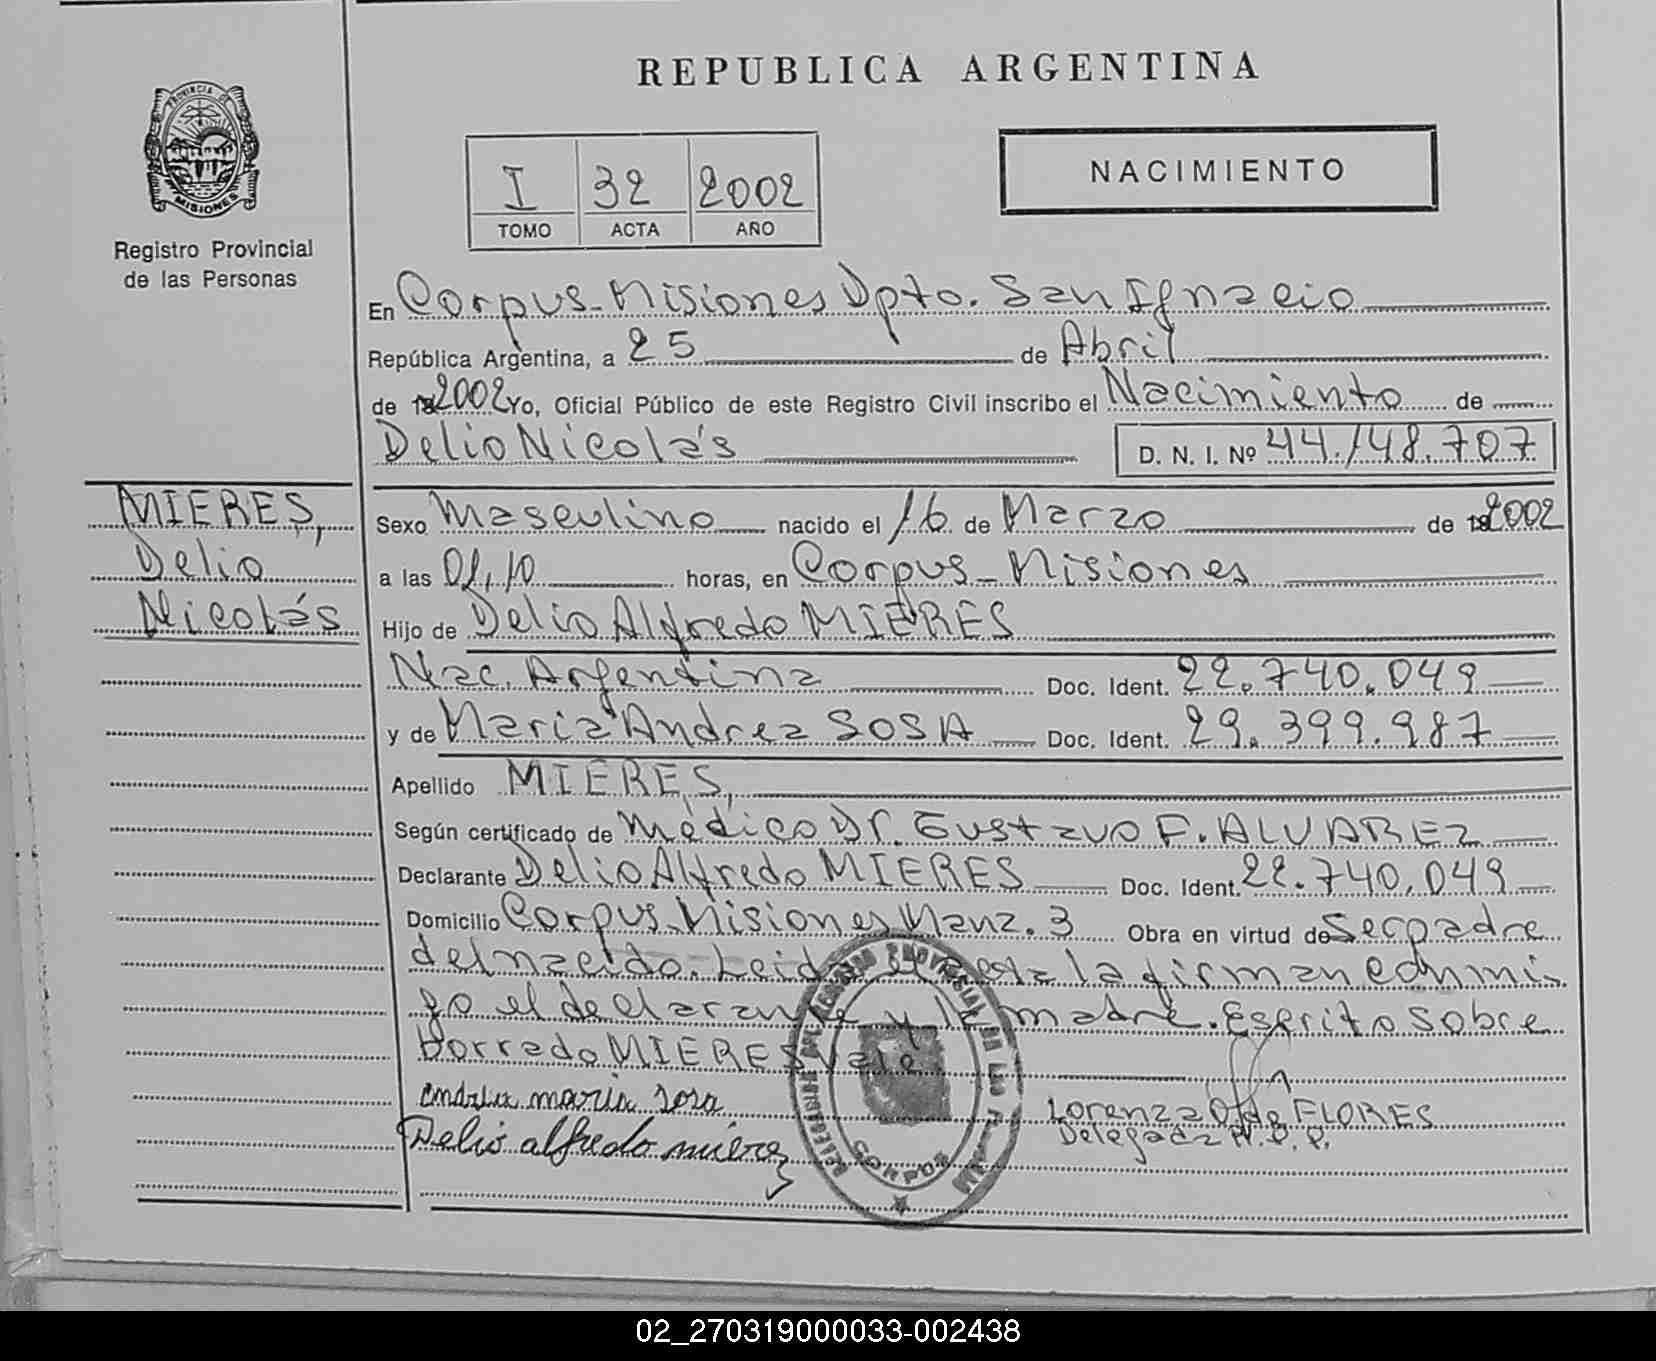 REPUBLICA ARGENTINA
PROVINCIA DE
MISIONES
Registro Provincial
de las Personas
I 32 2002
TOMO ACTA AÑO
NACIMIENTO
En Corpus-Misiones Dpto. San Ignacio
República Argentina, a 25 de Abril
de 2002 Yo, Oficial Público de este Registro Civil inscribo el Nacimiento de
Delio Nicolás D. N. I. Nº 44.148.707
MIERES,
Delio
Nicolás
Sexo Masculino nacido el 16 de Marzo de 2002
a las 01,10 horas, en Corpus-Misiones
Hijo de Delio Alfredo MIERES
Nac. Argentina Doc. Ident. 22.740.049
y de Maria Andrea SOSA Doc. Ident. 29.399.987
Apellido MIERES,
Según certificado de Médico Dr. Gustavo F. ALVAREZ
Declarante Delio Alfredo MIERES Doc. Ident. 22.740.049
Domicilio Corpus-Misiones Manz. 3 Obra en virtud de Ser padre
del nacido. Leida el acta la firman conmi
go el declarante y la madre. Escrito sobre
borrado MIERES Vale
maria sosa
Delio alfredo mieres
Lorenza O. de FLORES
Delegada R.P.P.
CORPUS
02_270319000033-002438